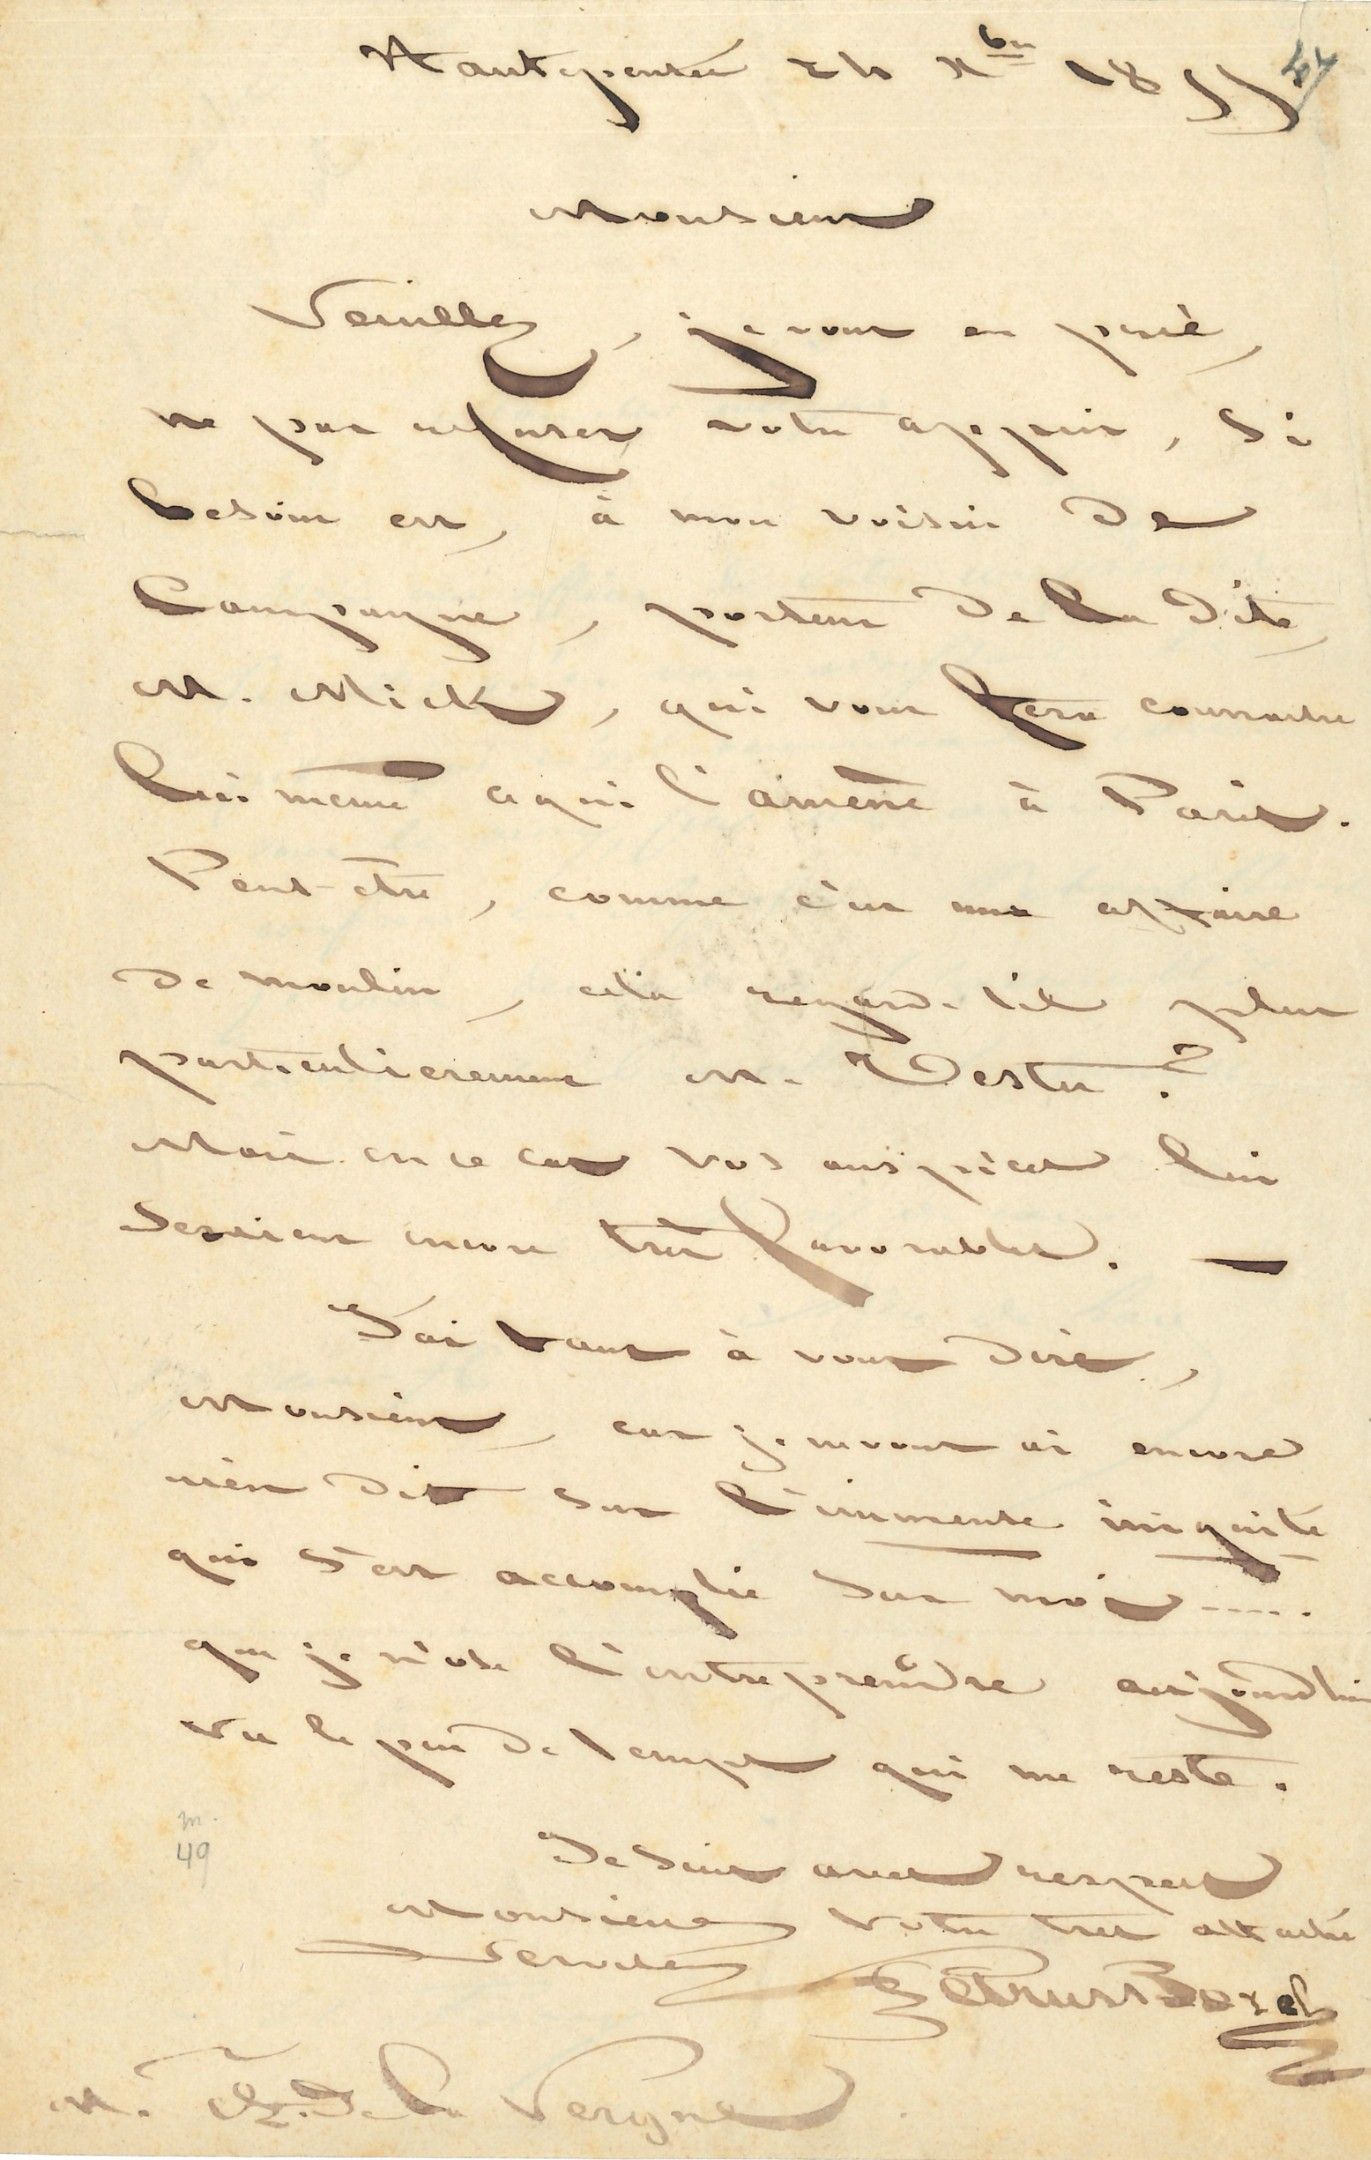 Hautepensée 24 Xbre 1855
Monsieur
Veuillez, je vous en prie,
ne pas refuser votre appui, si
besoin est, à mon voisin de
Campagne, porteur de la dite,
M. Mick, qui vous fera connaitre
lui même cequi l'amène à Paris.
Peut-être, comme c'est une affaire
de moulin, cela regarde-t'il plus
particulièrement M. Testu?
Mais en ce cas vos auspices lui
seraient encore très favorables. —
J'ai tant à vous dire,
Monsieur, car je ne vous ai encore
rien dit sur l'immense iniquité
qui s'est accomplie sur moi.....
que je n'ose l'entreprendre aujourd'hui
vu le peu de temps qui me reste.
m.
49
Je suis avec respect
Monsieur votre très attaché
Serviteur
Petrus Borel
M. de la Vergne.